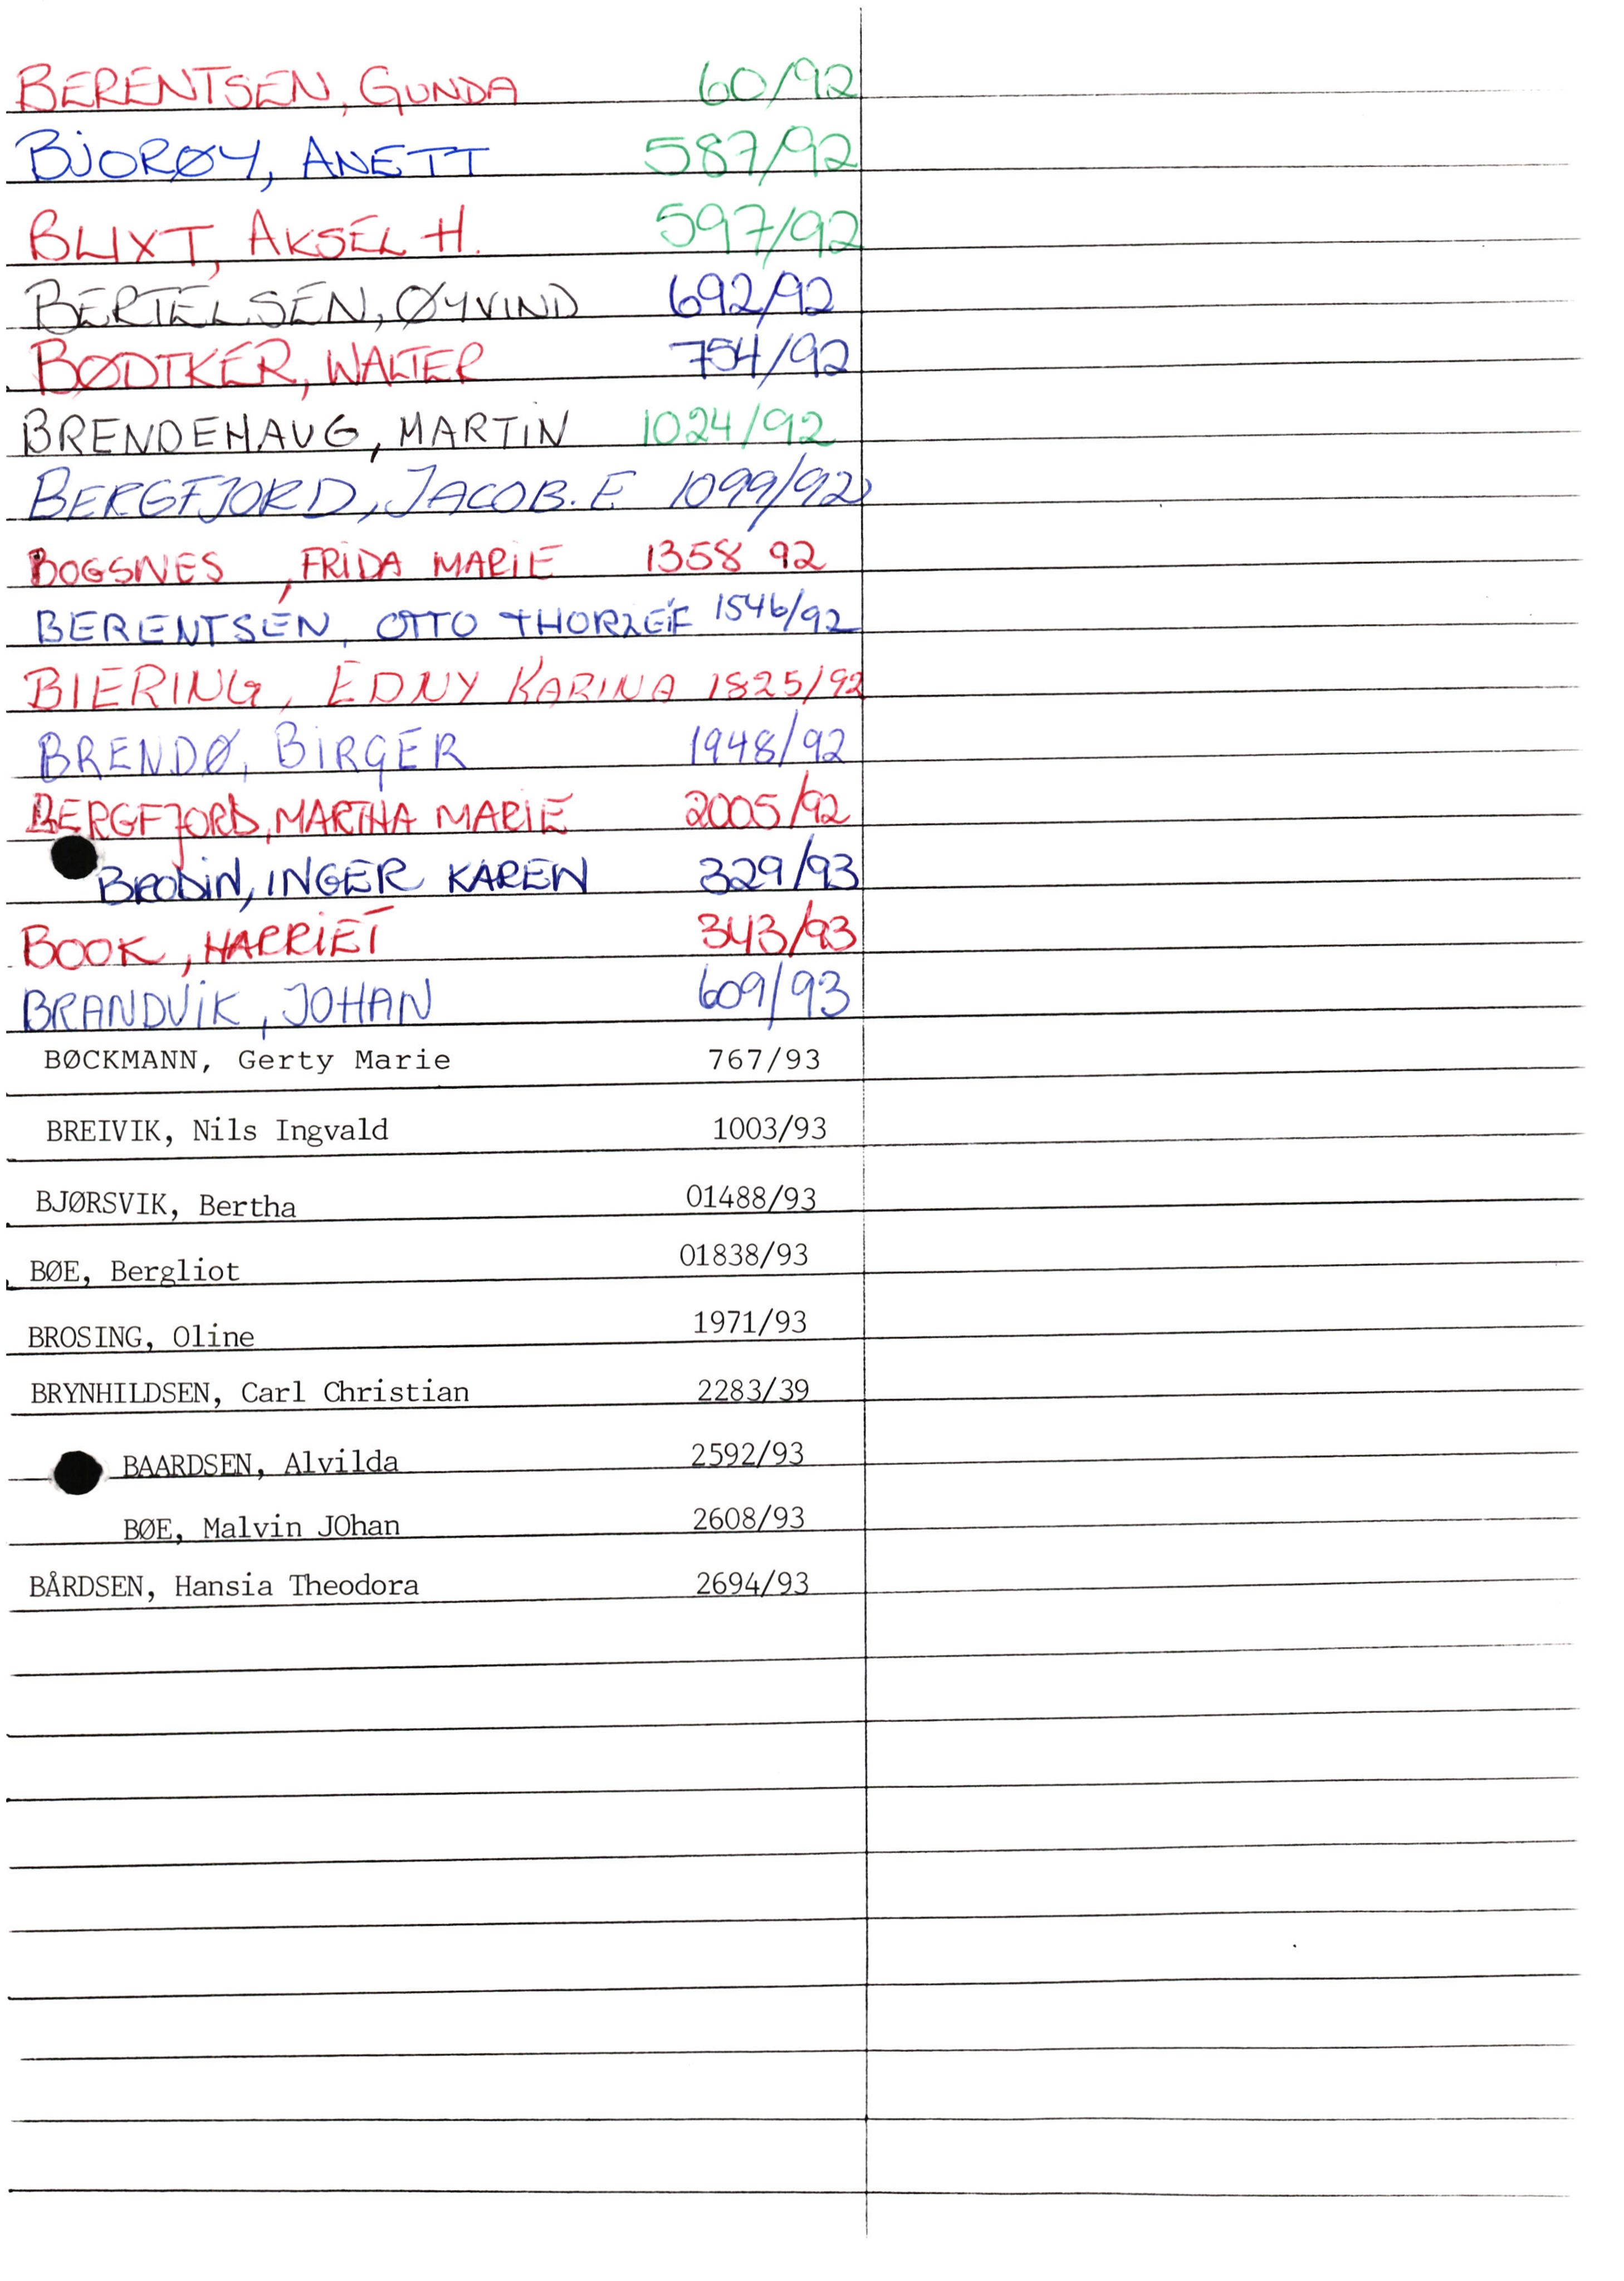 BERENTSEN, GUNDA 60/92
BJORØY, ANETT 587/92
BLIXT, AKSEL H. 597/92
BERTELSEN, ØYVIND 692/92
BØDTKER, WALTER 754/92
BRENDEHAUG, MARTIN 1024/92
BERGFJORD, JACOB. E 1099/92
BOGSNES , FRIDA MARIE 1358 92
BERENTSEN, OTTO THORLEIF 1546/92
BIERING, EDNY KARINA 1825/92
BRENDØ, BIRGER 1948/92
BERGFJORD, MARTHA MARIE 2005/92
BRODIN, INGER KAREN 329/93
BOOK, HARRIET 343/93
BRANDVIK, JOHAN 609/93
BØCKMANN, Gerty Marie 767/93
BREIVIK, Nils Ingvald 1003/93
BJØRSVIK, Bertha 01488/93
BØE, Bergliot 01838/93
BROSING, Oline 1971/93
BRYNHILDSEN, Carl Christian 2283/39
BAARDSEN, Alvilda 2592/93
BØE, Malvin JOhan 2608/93
BÅRDSEN, Hansia Theodora 2694/93